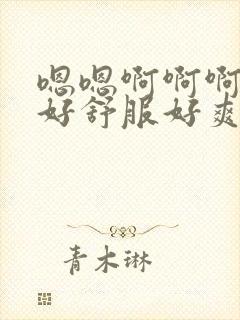 嗯嗯啊啊啊
好舒服好爽
青木琳